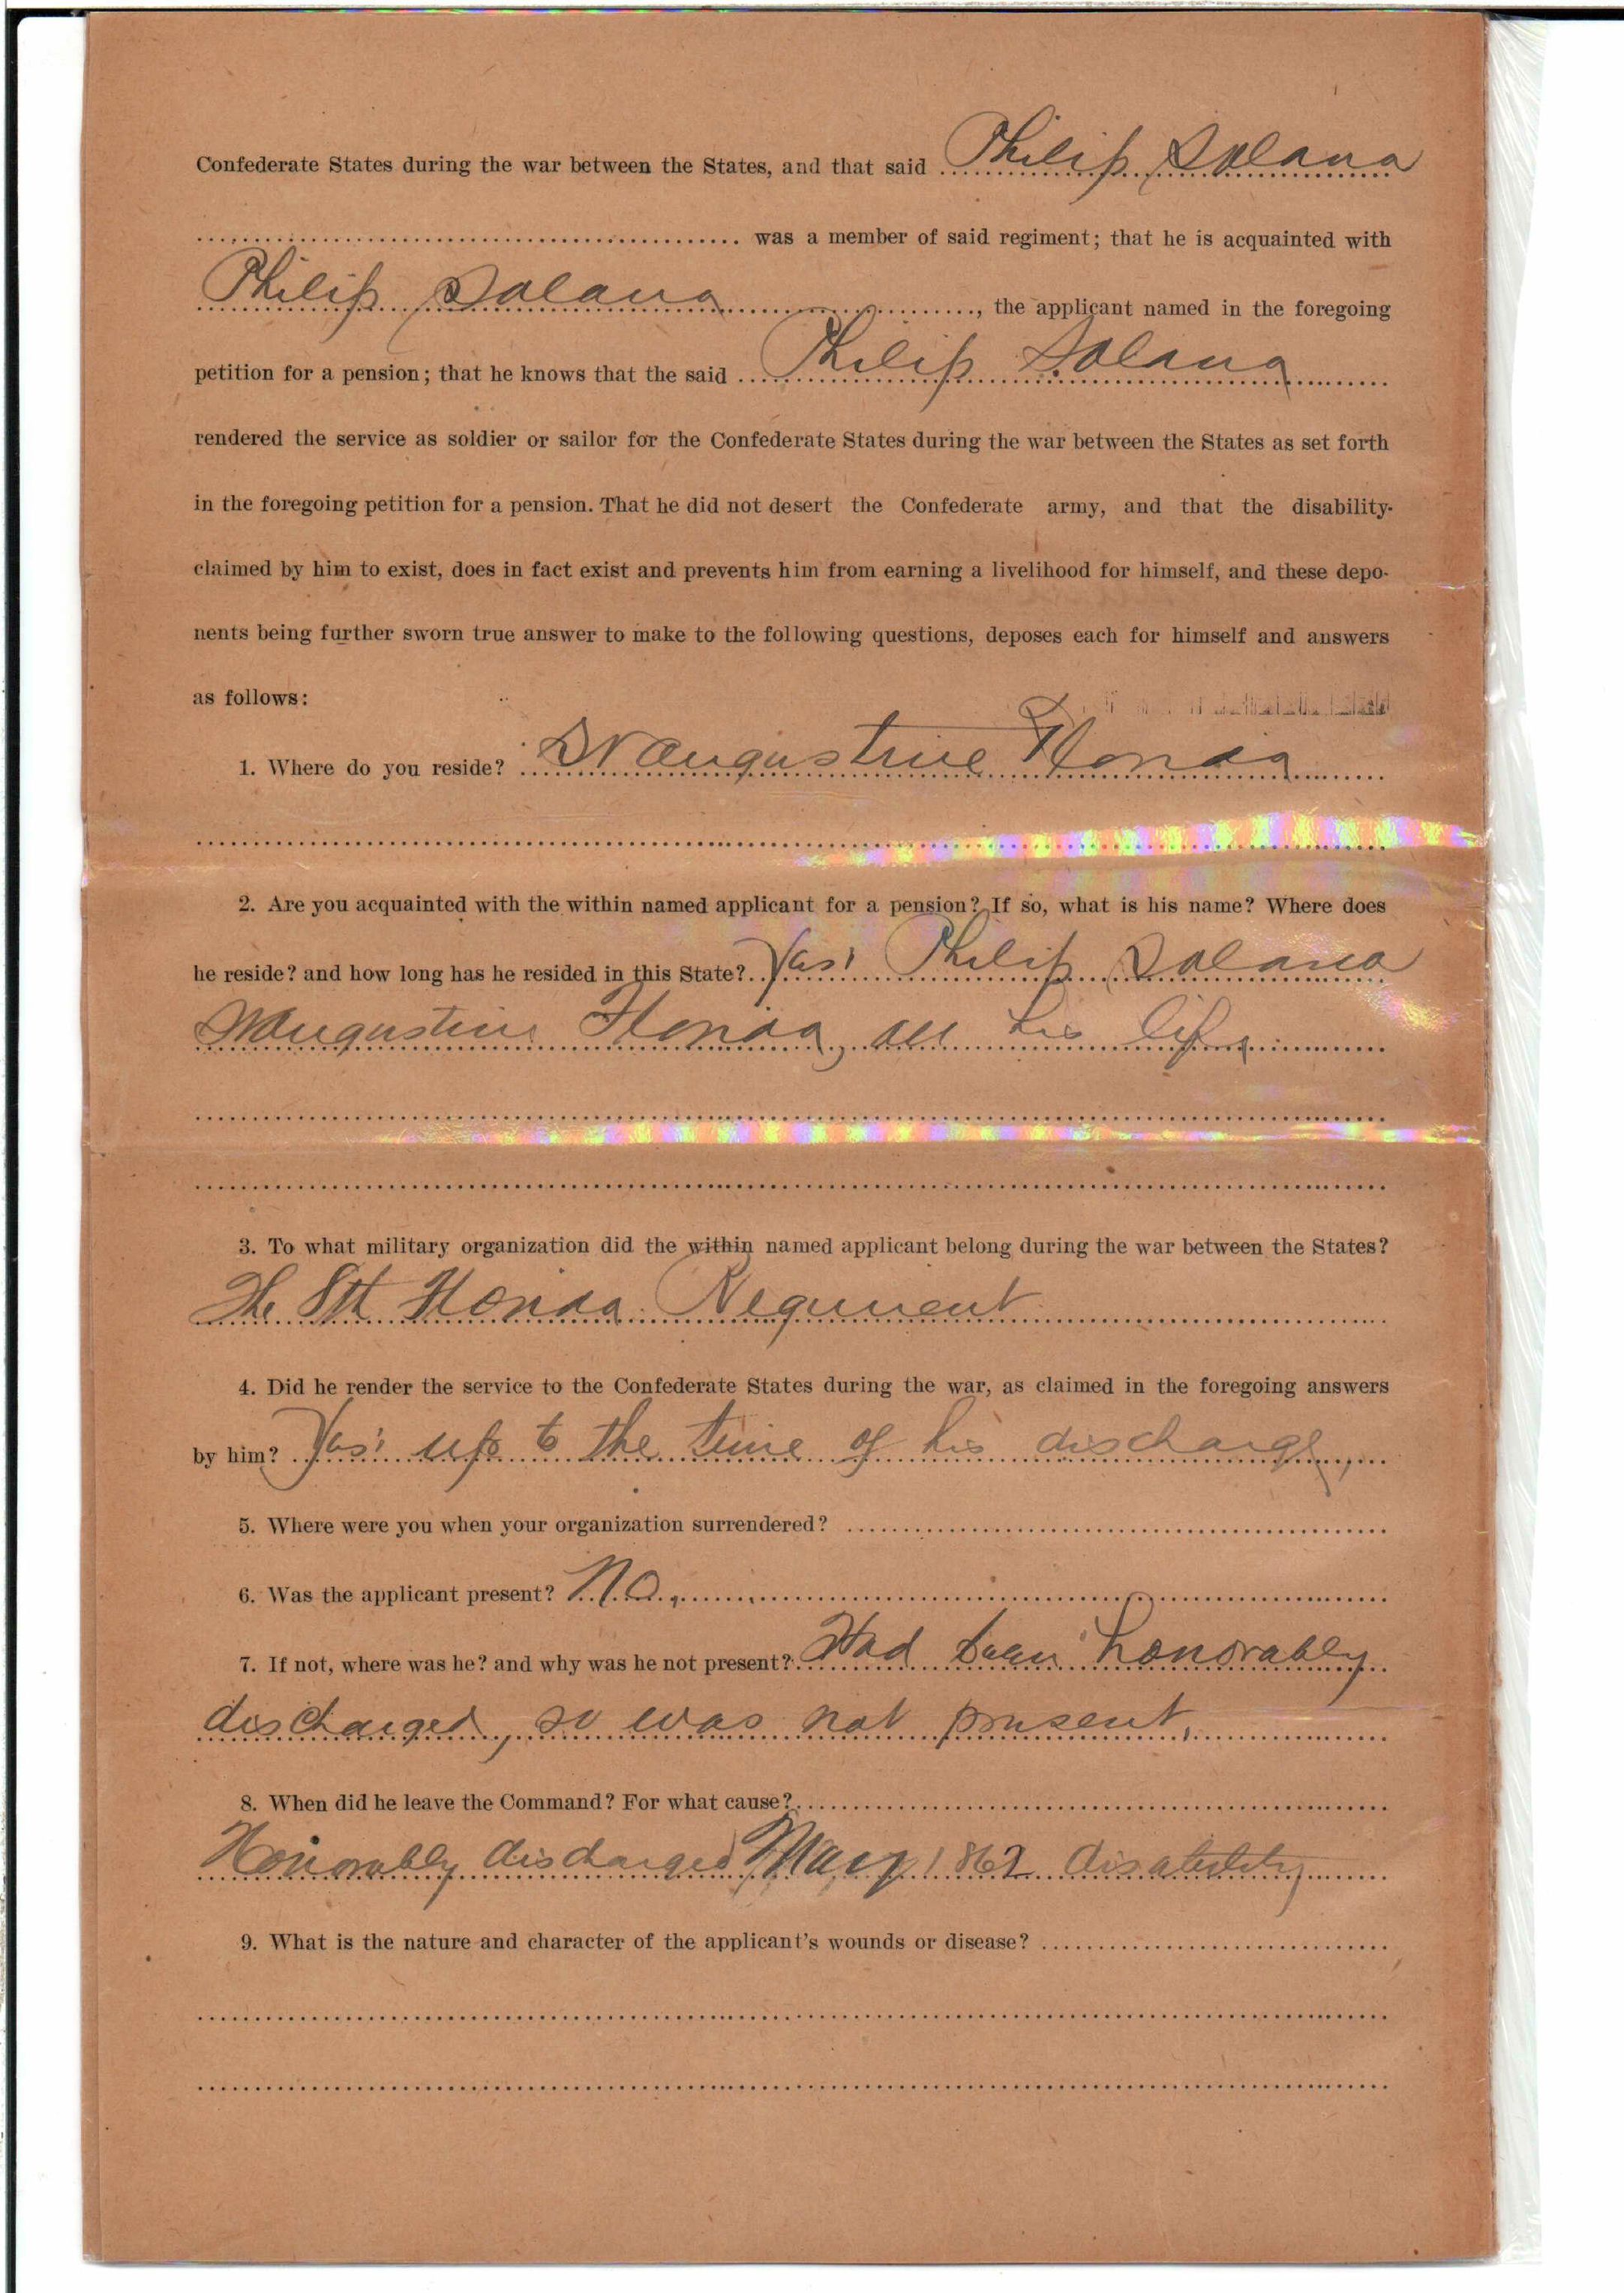 Confederate States during the war between the States, and that said Philip Solana
was a member of said regiment; that he is acquainted with
Philip Solana, the applicant named in the foregoing
petition for a pension; that he knows that the said Philip Solana
rendered the service as soldier or sailor for the Confederate States during the war between the States as set forth
in the foregoing petition for a pension. That he did not desert the Confederate army, and that the disability-
claimed by him to exist, does in fact exist and prevents him from earning a livelihood for himself, and these depo-
nents being further sworn true answer to make to the following questions, deposes each for himself and answers
as follows:
1. Where do you reside? St Augustine Florida
2. Are you acquainted with the within named applicant for a pension? If so, what is his name? Where does
he reside? and how long has he resided in this State? Yes, Philip Solana
St Augustine Florida, all his life.
3. To what military organization did the within named applicant belong during the war between the States?
The 8th Florida Regiment
4. Did he render the service to the Confederate States during the war, as claimed in the foregoing answers
by him? Yes, up to the time of his discharge,
5. Where were you when your organization surrendered?
6. Was the applicant present? No,
7. If not, where was he? and why was he not present? Had been honorably
discharged, so was not present,
8. When did he leave the Command? For what cause?
Honorably discharged May 1862 disability
9. What is the nature and character of the applicant's wounds or disease?